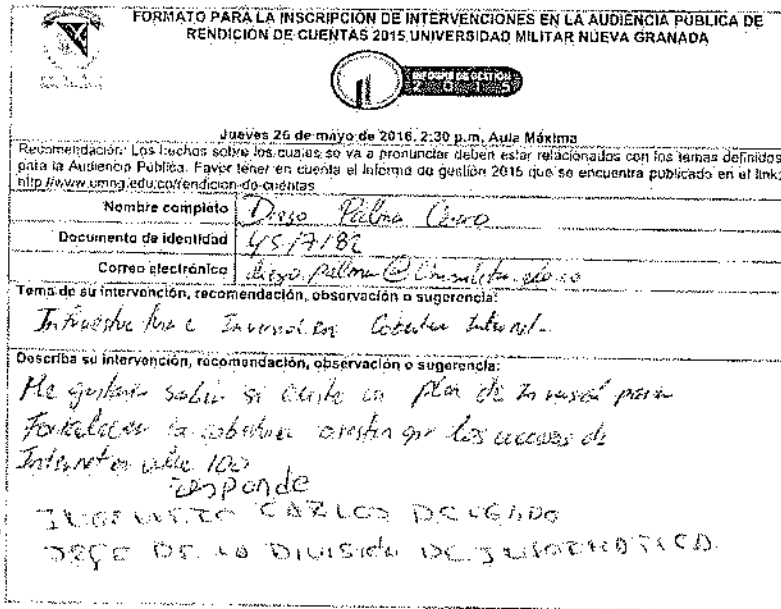 FORMATO PARA LA INSCRIPCIÓN DE INTERVENCIONES EN LA AUDIENCIA PÚBLICA DE
RENDICIÓN DE CUENTAS 2015 UNIVERSIDAD MILITAR NUEVA GRANADA
INFORME DE GESTIÓN
2015
Jueves 26 de mayo de 2016, 2:30 p.m, Aula Máxima
Recomendación: Los hechos sobre los cuales se va a pronunciar deben estar relacionados con los temas definidos
para la Audiencia Pública. Favor tener en cuenta el Informe de gestión 2015 que se encuentra publicado en el link:
http://www.umng.edu.co/rendicion-de-cuentas
Nombre completo Diego Palma
Documento de identidad
Correo electrónico
Tema de su intervención, recomendación, observación o sugerencia:
Infraestructura e Inversión en Cobertura Internet.
Describa su intervención, recomendación, observación o sugerencia:
Me gustaría saber si existe un plan de Inversión para
Fortalecer la cobertura los accesos de
Internet calle 100
responde
INGENIERO CARLOS DELGADO
JEFE DE LA DIVISIÓN DE INFORMATICA.